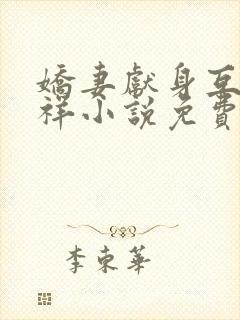 嬌妻獻身互
祥小說免費
李東華